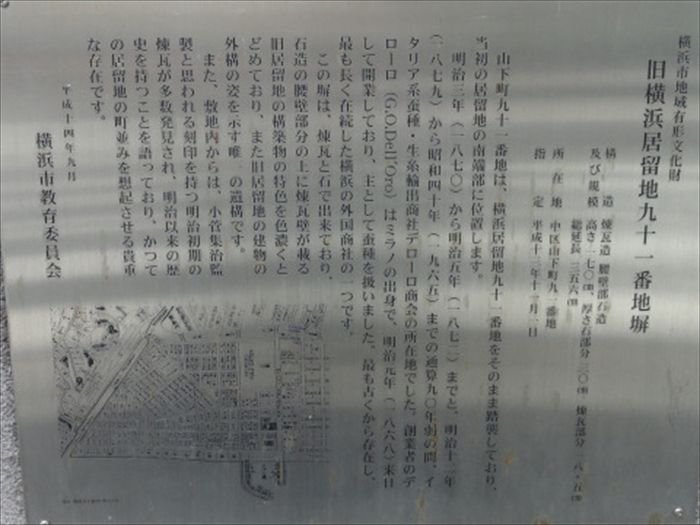 横浜市地域有形文化財
旧横浜居留地九十一番地塀
構造 煉瓦造 腰壁部石造
及び規模 高さ一七〇㎝、厚さ石部分三〇㎝ 煉瓦部分一八・五㎝
総延長一三五六㎝
所在地 中区山下町九一番地
指定 平成十三年十一月一日
山下町九十一番地は、横浜居留地九十一番地をそのまま踏襲しており、
当初の居留地の南端部に位置します。
明治三年(一八七〇)から明治五年(一八七二)までと、明治十二年
(一八七九)から昭和四十年(一九六五)までの通算九〇年弱の間、イ
タリア系蚕種・生糸輸出商社デローロ商会の所在地でした。創業者のデ
ローロ(G.O.Dell'Oro)はミラノの出身で、明治元年(一八六八)来日
して開業しており、主として蚕種を扱いました。最も古くから存在し、
最も長く在続した横浜の外国商社の一つです。
この塀は、煉瓦と石で出来ており、
石造の腰壁部分の上に煉瓦壁が載る
旧居留地の構築物の特色を色濃くと
どめており、また旧居留地の建物の
外構の姿を示す唯一の遺構です。
また、敷地内からは、小菅集治監
製と思われる刻印を持つ明治初期の
煉瓦が多数発見され、明治以来の歴
史を持つことを語っており、かつて
の居留地の町並みを想起させる貴重
な存在です。
平成十四年九月
横浜市教育委員会